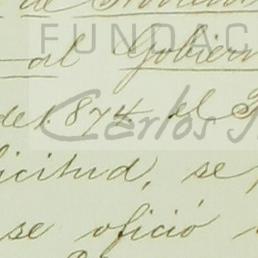 de
FUNDAC
al Gobiern
de 1.874. el
Carlos
icitud, se
se ofició